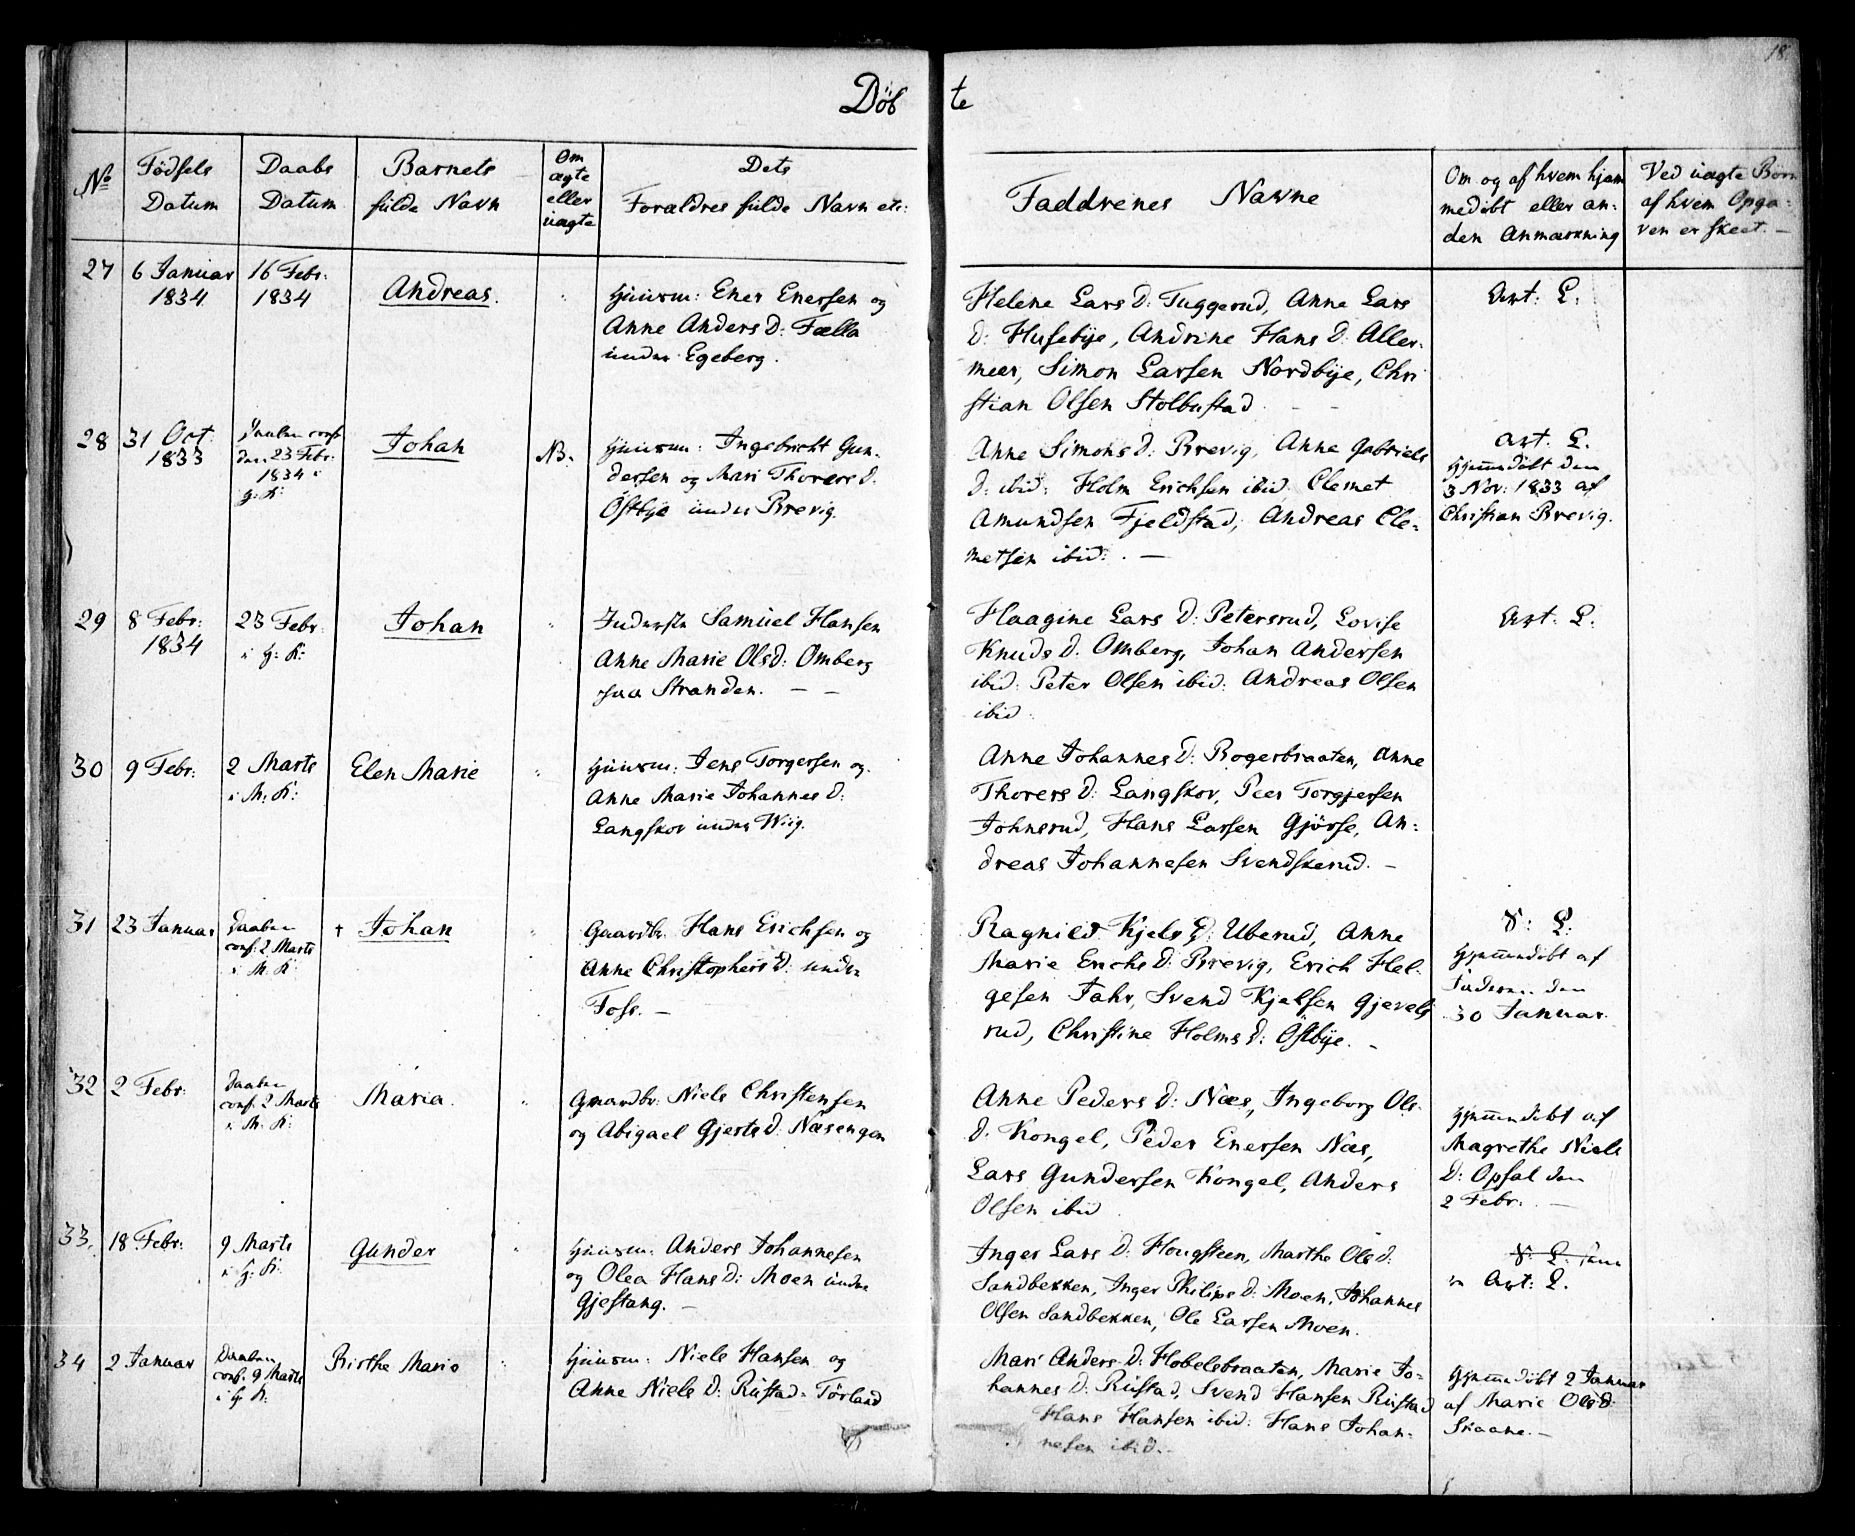 18
Döbte
No
Födsels
Datum
Daabs
Datum
Barnets
fulde Navn
Om
ægte
eller
uægte
Dets
Forældres fulde Navn etc:
Faddrenes Navne
Om og af hvem hjem
medöbt eller an:
den Anmærkning
Ved uægte Börn
af hvem Opga:
ven er skeet. –
27
6 Januar
1834
16 Febr:
1834
Andreas.
"
Huusm: Ener Enersen og
Anne Anders D: Fælla
under Egeberg.
Helene Lars D: Tuggerud, Anne Lars
D: Husebye, Andrine Hans D: Aller:
meer, Simon Larsen Nordbye, Chri
stian Olsen Stolbustad. – –
Art: L.
28
31 Oct:
1833
Daaben conf
den 23 Febr:
1834 i
H: K:
Johan
NB.
Huusm: Ingebricht Gun:
dersen og Mari Thorers D:
Östbye under Brevig.
Anne Simons D: Brevig, Anne Gabriels
D: ibid: Holm Erichsen ibid: Clemet
Amundsen Fjeldstad, Andreas Cle:
metsen ibid: . –
Art: L.
hjemmedöbt den
3 Nov: 1833 af
Christian Brevig.
29
8 Febr:
1834
23 Febr:
i H: K:
Johan
"
Inderster Samuel Hansen
Anne Marie Ols D: Omberg
paa Stranden. – –
Haagine Lars D: Petersrud, Lovise
Knuds D: Omberg, Johan Andersen
ibid: Peter Olsen ibid: Andreas Olsen
ibid:
Art: L:
30
9 Febr:
2 Marts
i M: K:
Elen Marie
"
Huusm: Jens Torgersen og
Anne Marie Johannes D:
Langskov under Wiig.
Anne Johannes D: Rogerbraaten, Anne
Thorers D: Langskov, Peer Torgjersen
Johnsrud, Hans Larsen Gjörse, An:
dreas Johannesen Svendskerud. –
31
23 Januar
Daaben
conf: 2 Marts
i M: K:
+ Johan
"
Gaardbr. Hans Erichsen og
Anne Christophers D: under
Foss. –
Ragnild Kjels D: Uberud, Anne
Marie Erichs D: Brevig, Erich Hel-
gesen Fahr, Svend Kjelsen Gjevels
rud, Christine Holms D: Östbye. –
V: L:
hjemmedöbt af
Faderen den
30 Januar.
32
2 Febr:
Daaben
conf. 2 Marts
i M: K:
Maria.
"
Gaardbr: Niels Christensen
og Abigael Gjerts D: Næsengen
Anne Peders D: Næs, Ingeborg Ols-
D: Kongel, Peder Enersen Næs,
Lars Gundersen Kongel, Anders
Olsen ibid.
hjemmedöbt af
Magrethe Niels
D: Opsal den
2 Febr: –
33.
18 Febr:
9 Marts
i H: K:
Gunder
"
Huusm: Anders Johannesen
og Olea Hans D: Moen under
Gjestang. –
Inger Lars D: Hougsteen, Marthe Ols D:
Sandbekken, Inger Philips D: Moen, Johannes
Olsen Sandbekken, Ole Larsen Moen.
V: L:
Art: L.
34
2 Januar
Daaben
conf. 9 Marts
i H: K:
Birthe Marie
"
Huusm: Niels Hansen og
Anne Niels D: Rustad-Törland
Mari Anders D: Hobelsbraaten, Marie Jo-
hannes D: Rustad, Svend Hansen Rustad
Hans Hansen ibid: Hans Johan:
nesen ibid. –
hjemmedöbt 2 Januar
af Marie Ols D:
Skaane. –